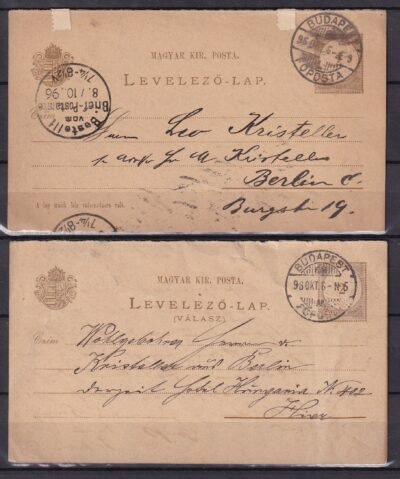 MAGYAR KIR. POSTA.
LEVELEZŐ-LAP.
BUDAPEST
96 OKT. 6
FŐPOSTA
Bestellt
vom
Brief-Postamte
8./10. 96
7¼-8½V
Czim
Herrn Leo Kristeller
Kristeller
Berlin C.
Burgstr 19.
7¼-8½V
MAGYAR KIR. POSTA.
LEVELEZŐ-LAP.
(VÁLASZ)
BUDAPEST
96 OKT. 6
FŐPOSTA
Czim
Wohlgeboren Herrn
Kristeller aus Berlin
derzeit Hotel Hungaria
Hier